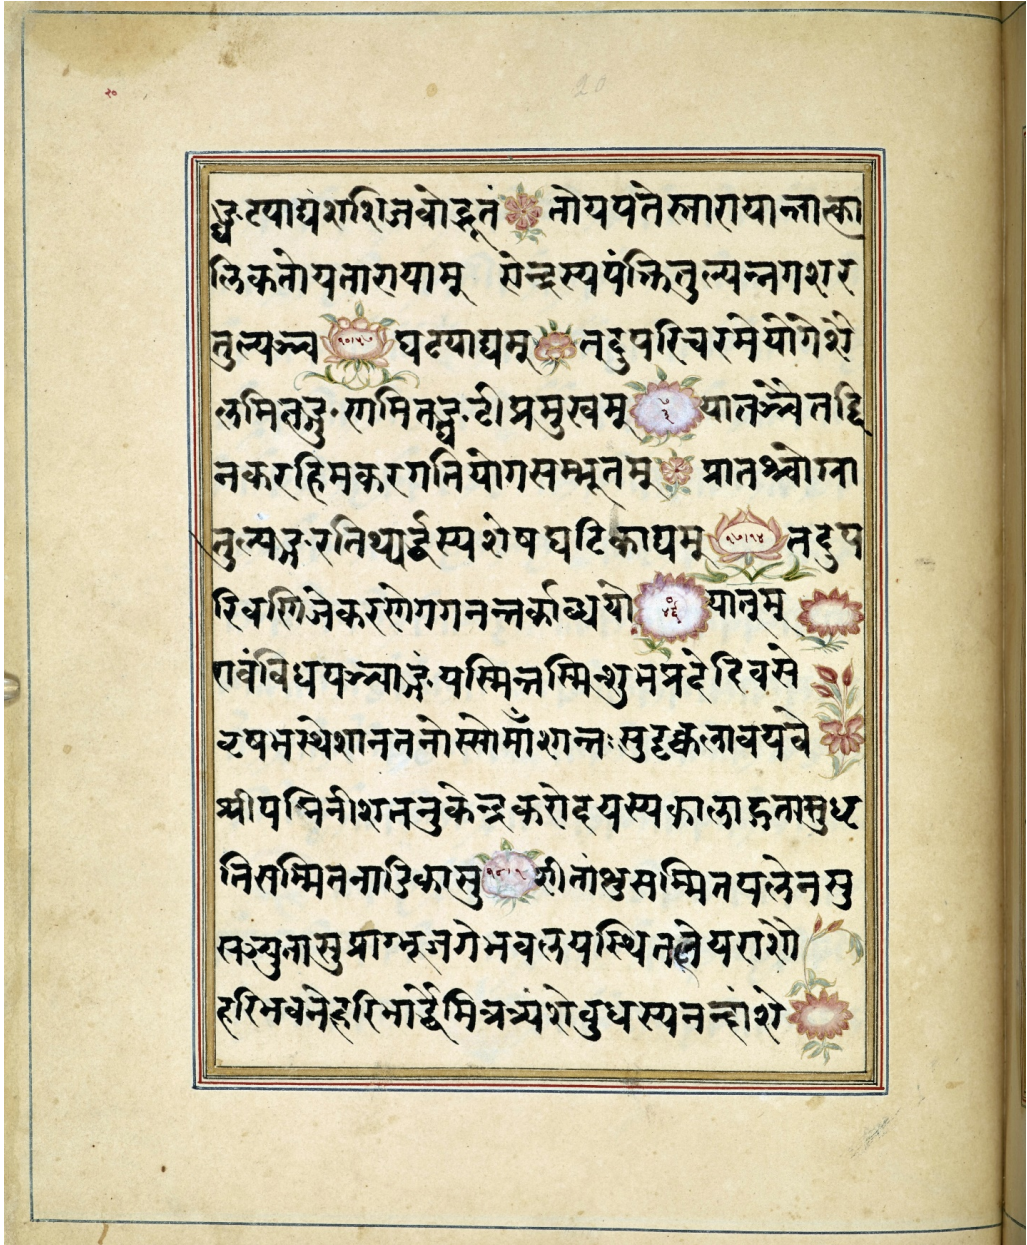 २०
20
ङ्घटयाद्यंशशिजवोद्भूतं तोयपतेस्तारायास्तात्का
लिकतोयतारायामु सेन्द्रस्यपंक्तितुल्यन्नगशर
तुल्यञ्च १०।५७ घटयाद्यमु तदुपरिचरमेयोगेशे
लमितङ्गुणमितङ्घटीप्रमुखमु ७ ३ यातञ्चैतद्दि
नकरहिमकरगतियोगसम्भूतमु प्रातश्चोग्ना
तुल्यङ्गरतिथ्यर्द्धस्यशेषघटिकाद्यमु १७।१४ तदुप
रिवणिजेकरणेगगनन्तर्काब्धयो ० ४६ यातुमु
एवंविधपञ्चाङ्गेयस्मिन्तस्मिन्शुभप्रदेदिवसे
वृषभस्थेशानतनोस्सोमाँशान्तःसुदृक्कलावयवे
श्रीपद्मिनीशतनुकेन्द्रकरोदयस्यकालाद्गतासुधृ
तिसम्मितनाडिकासु १८।१ शीतांशुसम्मितपलेनसु
सञ्युतासुप्राग्भूजगेभवलयस्थिततेयराशौ
हरिभवनेहरिभार्द्धेमित्रत्र्यंशेबुधस्यनन्दांशे